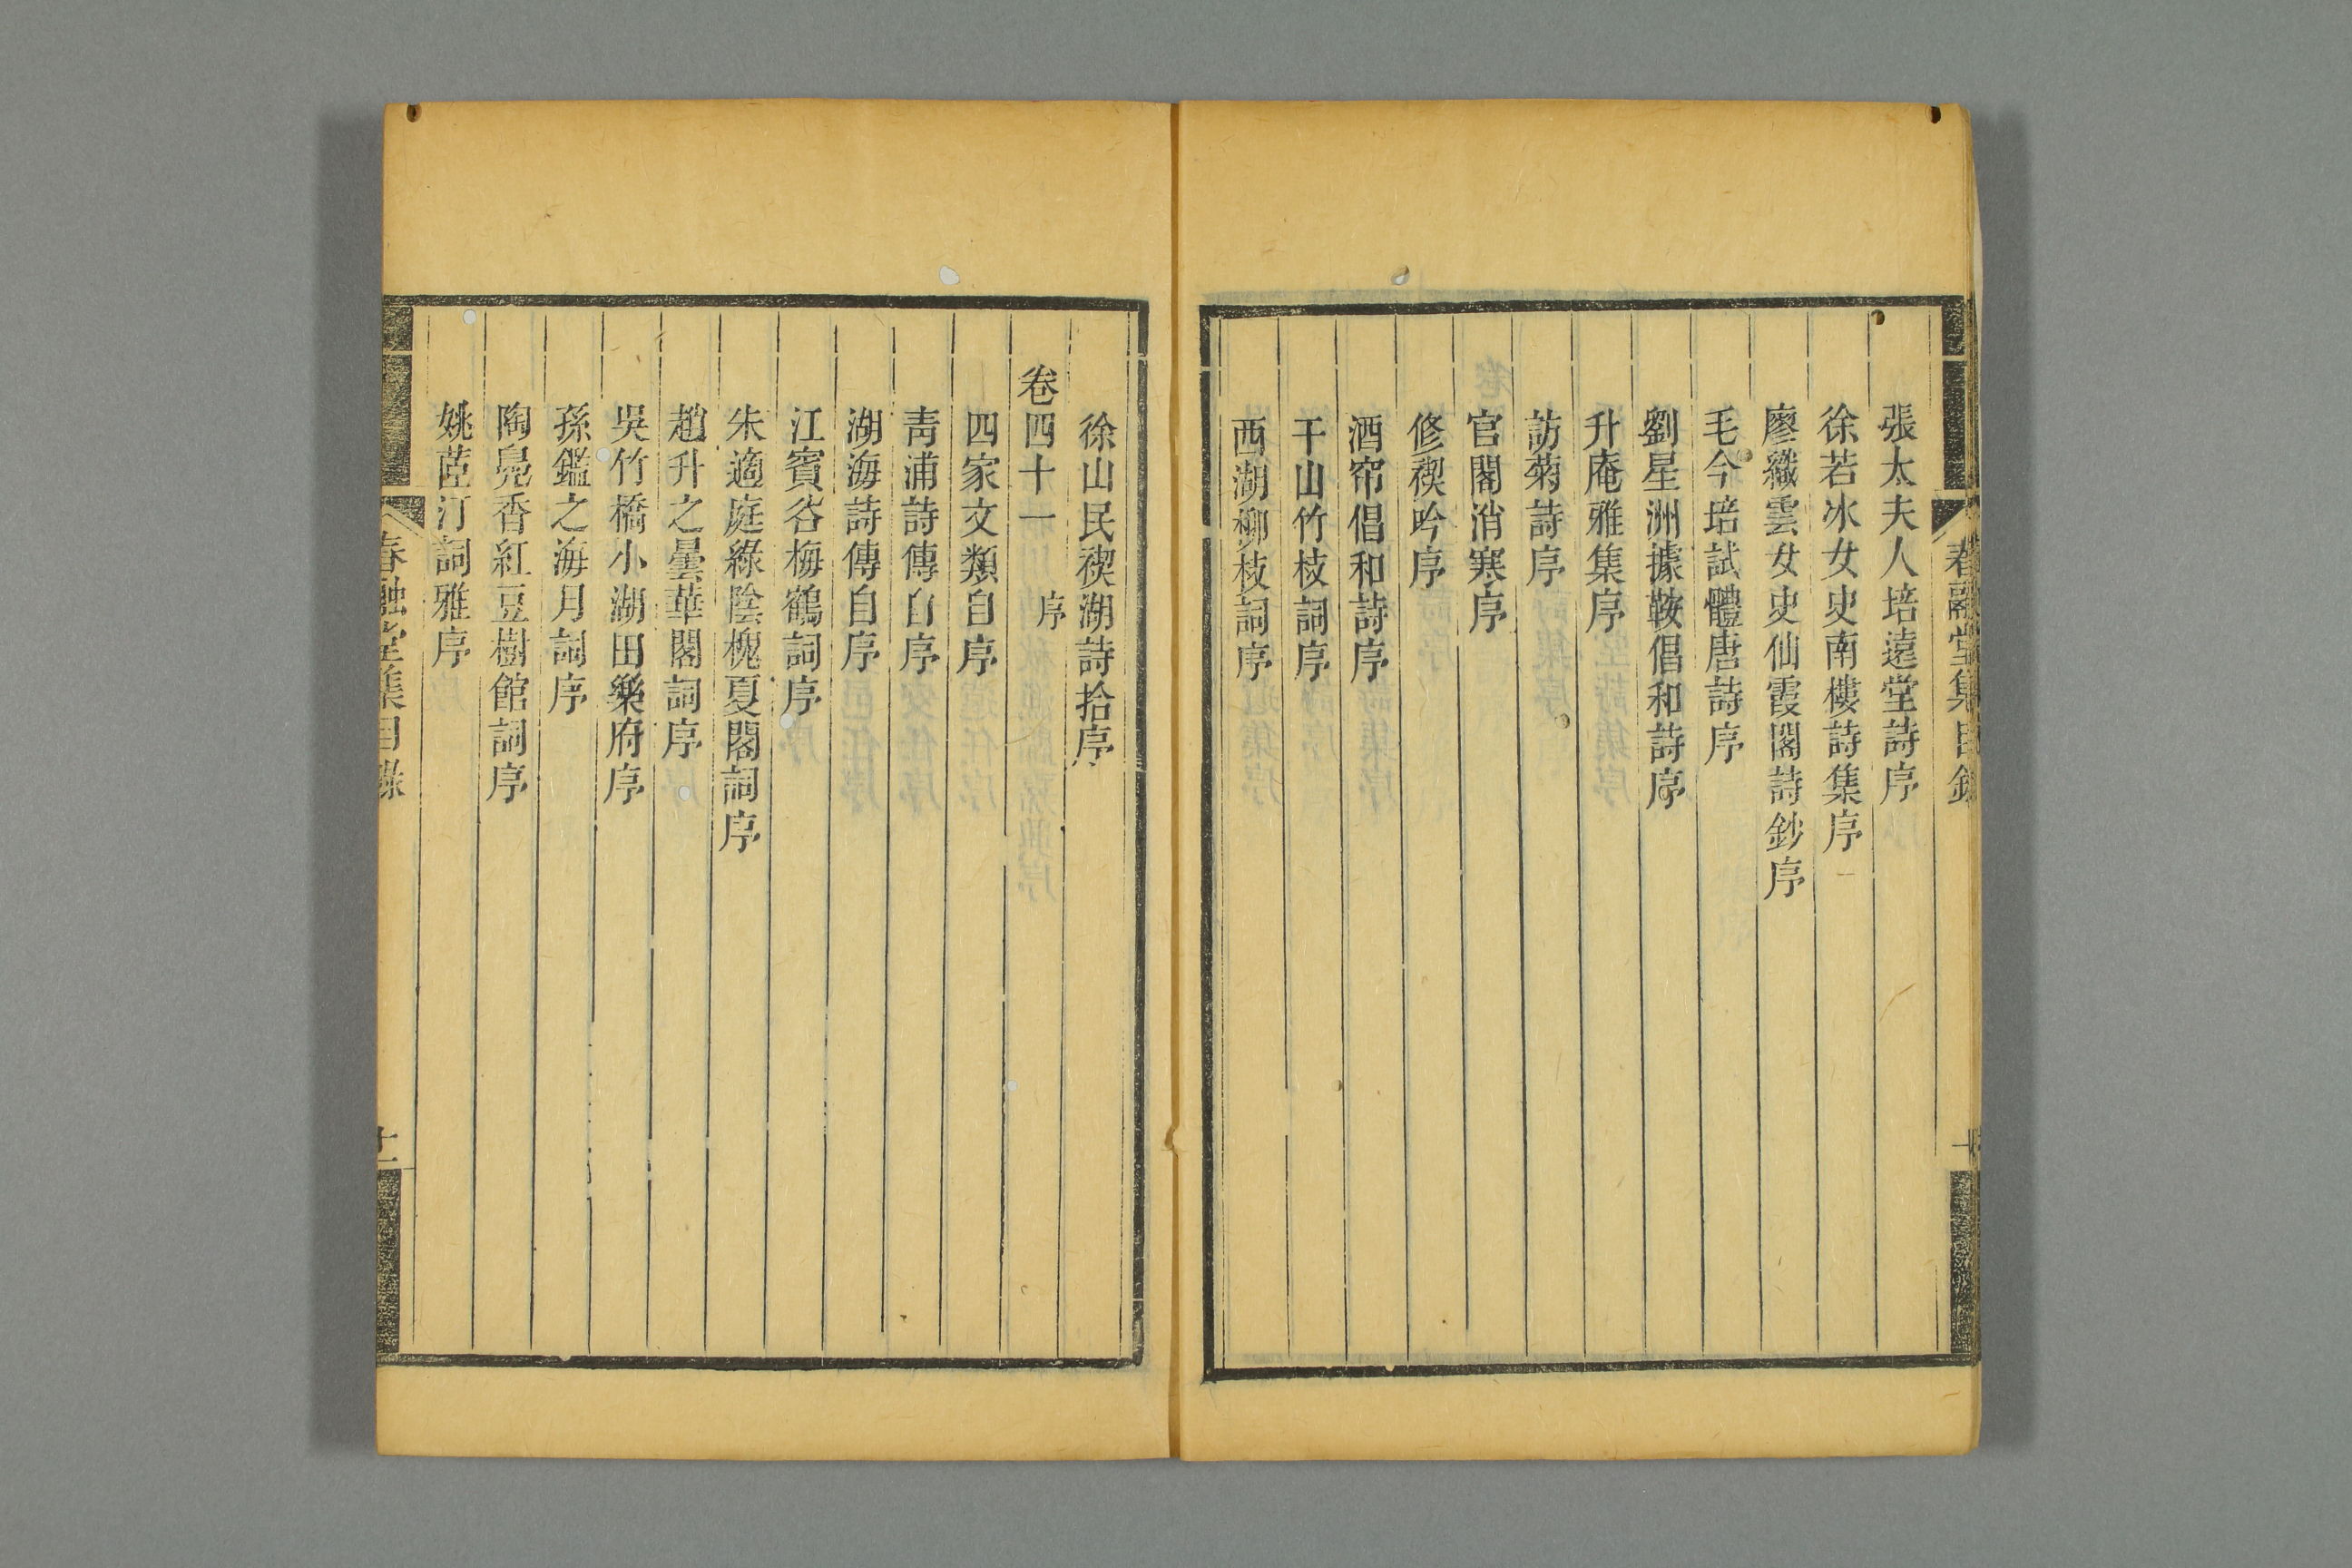 春融堂集目錄
張太夫人培遠堂詩序
徐若冰女史南樓詩集序
廖織雲女史仙霞閣詩鈔序
毛今培試體唐詩序
劉星洲據鞍倡和詩序
升庵雅集序
訪菊詩序
官閣消寒序
修禊吟序
酒帘倡和詩序
干山竹枝詞序
西湖柳枝詞序
徐山民禊湖詩拾序
卷四十一 序
四家文類自序
青浦詩傳自序
湖海詩傳自序
江賓谷梅鶴詞序
朱適庭綠陰槐夏閣詞序
趙升之曇華閣詞序
吳竹橋小湖田樂府序
孫鑑之海月詞序
陶鳧香紅豆樹館詞序
姚茝汀詞雅序
春融堂集目錄